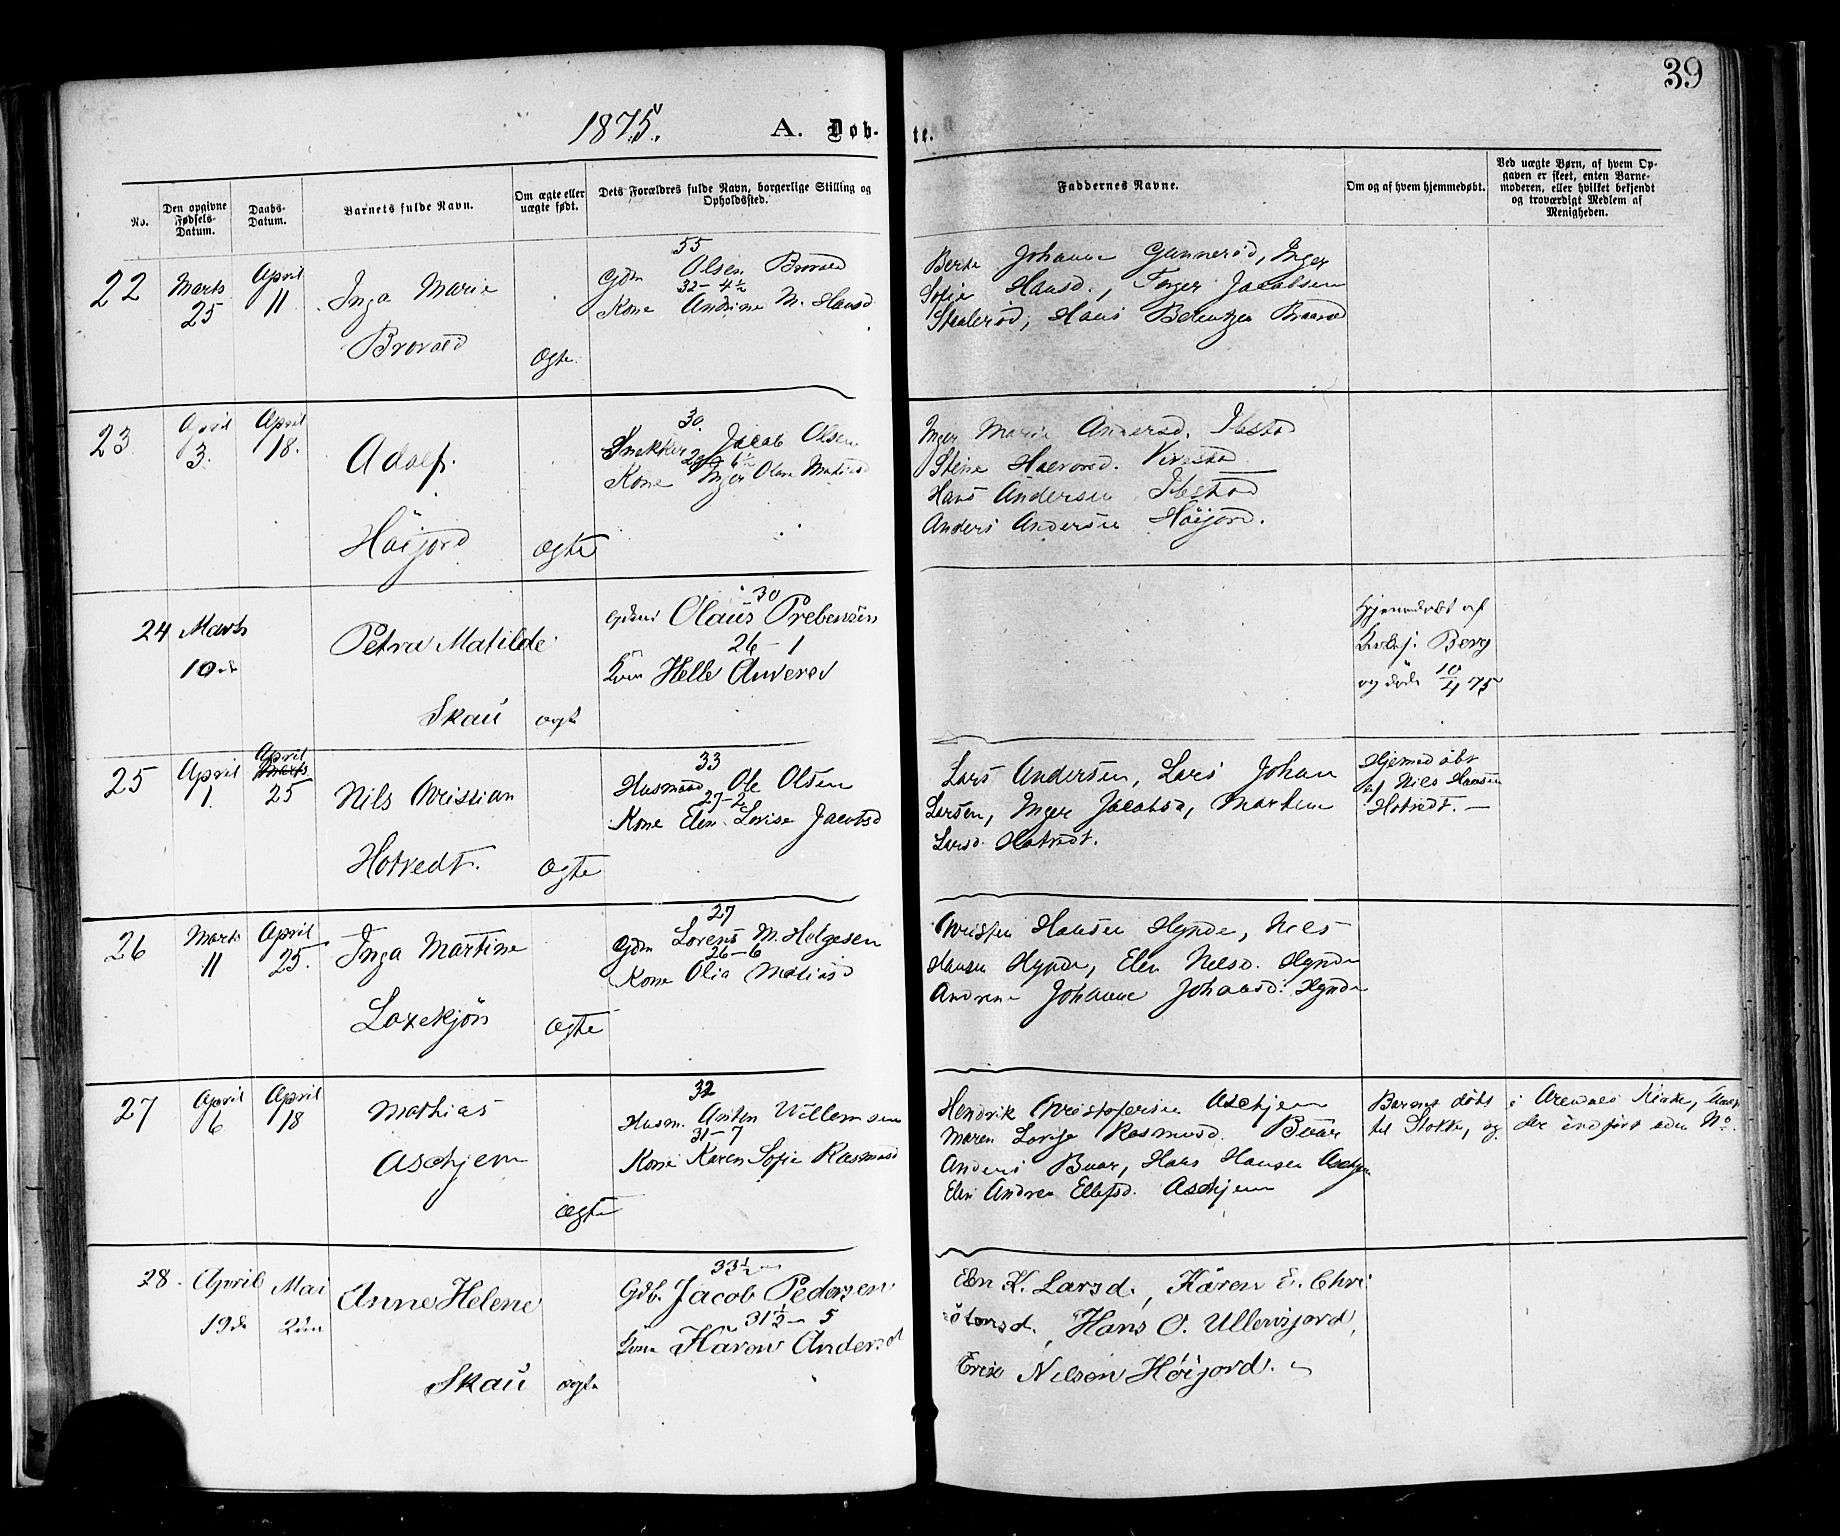 39
1875. A. Døb- te.
No.
Den opgivne Fødsels-Datum.
Daabs-Datum.
Barnets fulde Navn.
Om ægte eller uægte født.
Dets Forældres fulde Navn, borgerlige Stilling og Opholdssted.
Faddernes Navne.
Om og af hvem hjemmedøbt.
Ved uægte Børn, af hvem Opgaven er skeet, enten Barnemoderen, eller hvilket bekjendt og troværdigt Medlem af Menigheden.
22
Marts 25
April 11
Inga Marie
Brovald
Ægte
55
Gdm Olsen Brovald
32-4½
Kone Andrine M. Hansd
Johanne Gunnerød, Inger
Sofie Hansd., Jacobsen
Stalerød, Hans
23
April 3.
April 18.
Adolf.
Høijord
Ægte
30.
Snekker Jacob Olsen
Kone Inger Olava
Inger Marie Andersd. Ibstad
Stine
Hans Andersen Ibstad
Anders Andersen Høijord.
24
Marts 10de
Petra Matilde
Skau
ægte
30
Olaus Prebensen
26-1
Helle Andersd
Hjemmedøbt af
Berg
og død 10/4 75
25
April 1.
April
Marts
25
Nils Kristian
Hotvedt.
Ægte
33
Husmand Ole Olsen
27-2
Kone Elen Lovise Jacobsd
Lars Andersen, Lars Johan
Larsen, Inger Jacobsd, Marthine
Larsd. Hotvedt.
Hjemedøbt
af Nils Hansen
Hotvedt. —
26
Marts 11
April 25.
Inga Martine
Ægte
27
Gdm Lorens M. Helgesen
26-6
Kone Olia Matiasd
Kristen Hansen Hynde, Nels
Hansen Hynde, Elen Nelsd. Hynde
Andrene Johanne Johansd. Hynde
27
April 6
April 18
Mathias
Askjem
Ægte
32
Husm. Anton Willemsen
31-7
Kone Karen Sofie Rasmusd
Hendrik Kristofersen Askjem
Maren Lovise Rasmusd. Buar
Anders Buar, Hans Hansen Askjem
Elen Andrea Ellefsd. Askjem
Barnet døbt i Arendals Kirke,
til Stokke, og der indført uden No.
28
April 19de
Mai 2den
Anne Helene
Skau
ægte
33½
Gdb. Jacob Pedersen
31½ 5
Karen Andersd
Elen K. Larsd., Karen E. Chri
stensd., Hans O. Ullensjord,
Erik Nilsen Høijord.